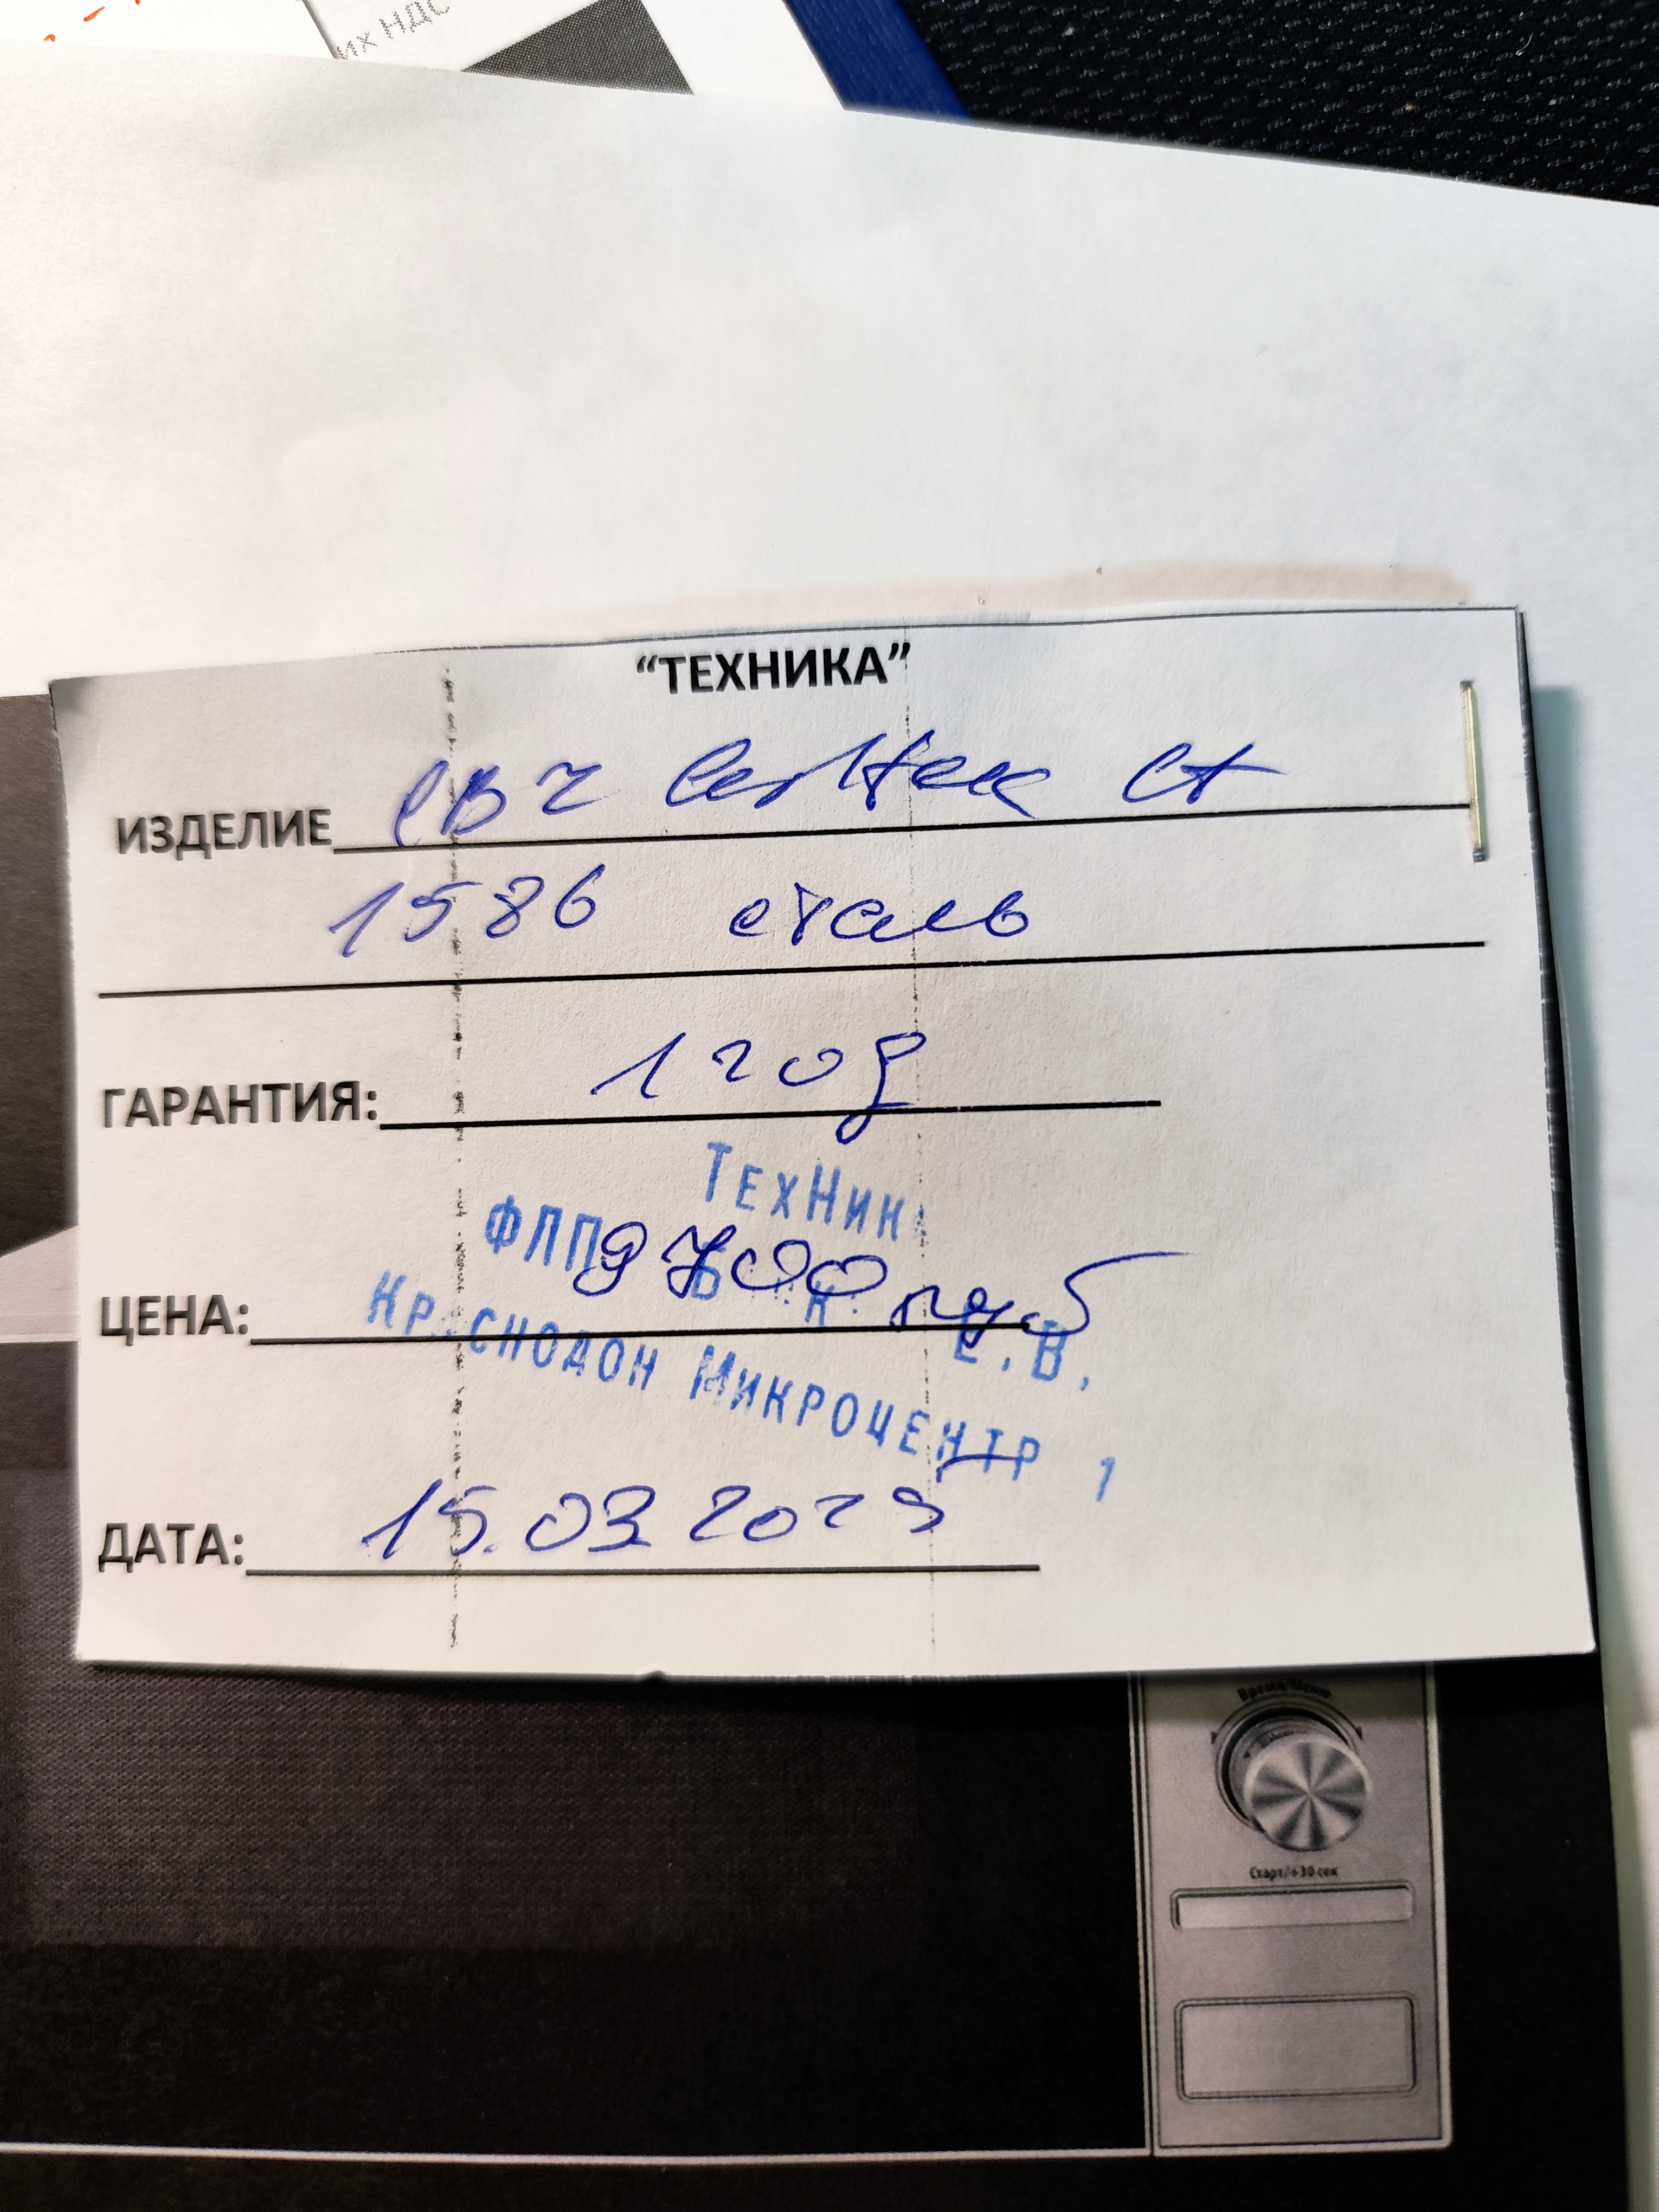 их НДС
“ТЕХНИКА”
ИЗДЕЛИЕ СВЧ Centek Ct
1586 сталь
ГАРАНТИЯ: 1 год
ТехНик
ФЛП Е.В.
ЦЕНА: 9700 руб
Краснодон Микроцентр 1
ДАТА: 15.03.2025
Время/Меню
Старт/+30 сек